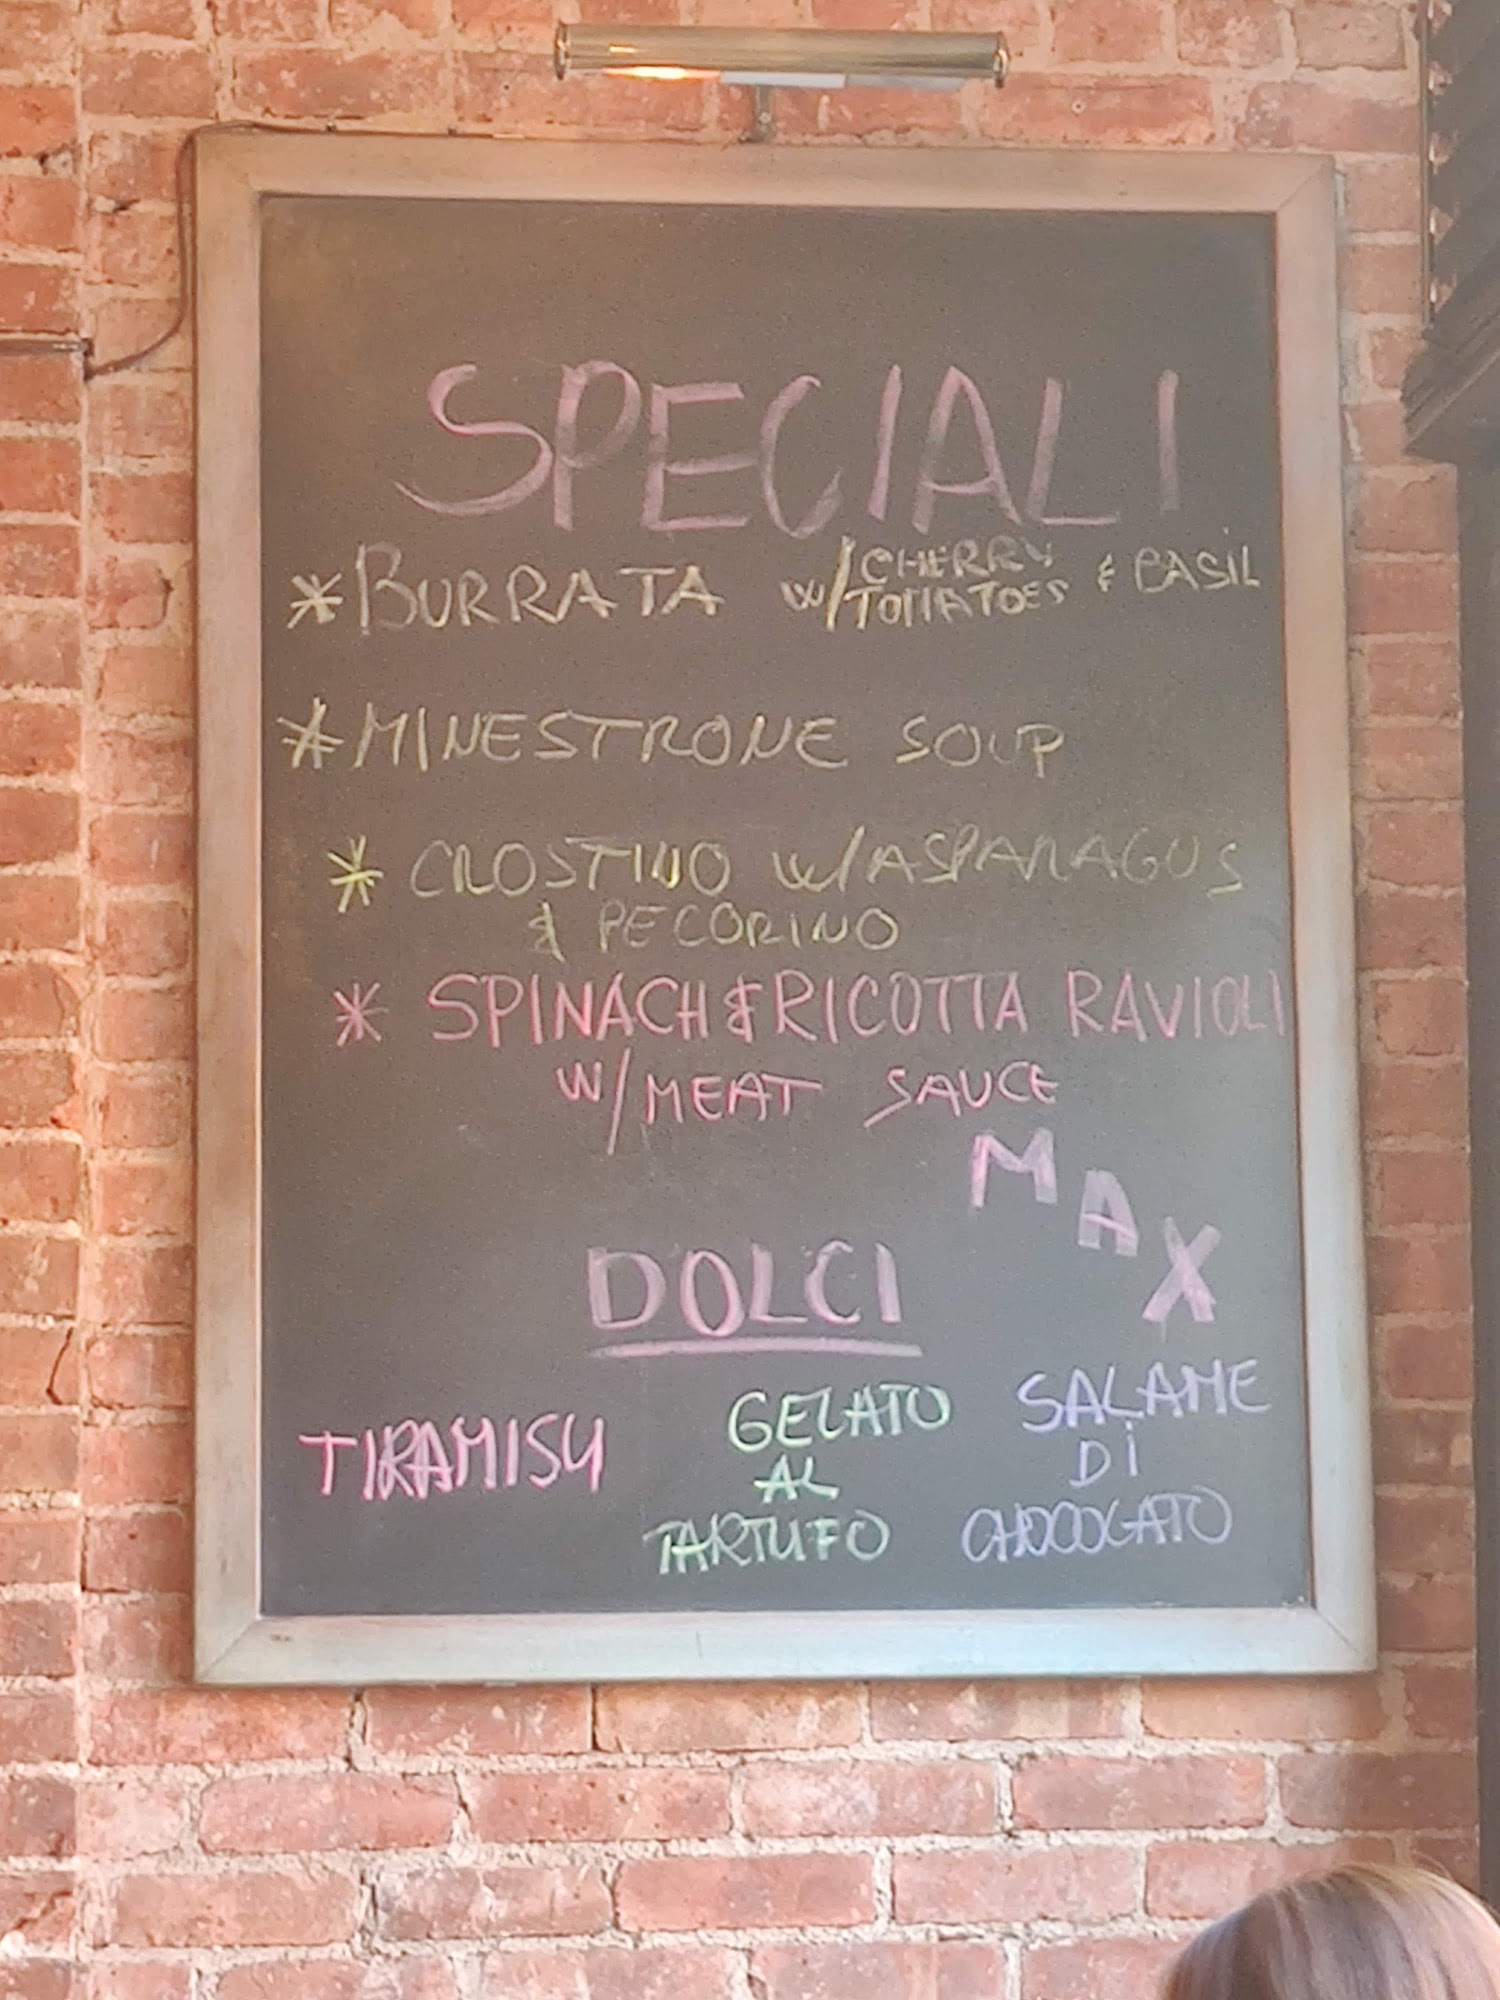 SPECIALI
*BURRATA W/CHERRY TOMATOES & BASIL
*MINESTRONE SOUP
* CROSTINO W/ASPARAGUS
& PECORINO
* SPINACH & RICOTTA RAVIOLI
W/MEAT SAUCE
MAX
DOLCI
TIRAMISU
GELATO
AL
TARTUFO
SALAME
Di
CHOCOCATO